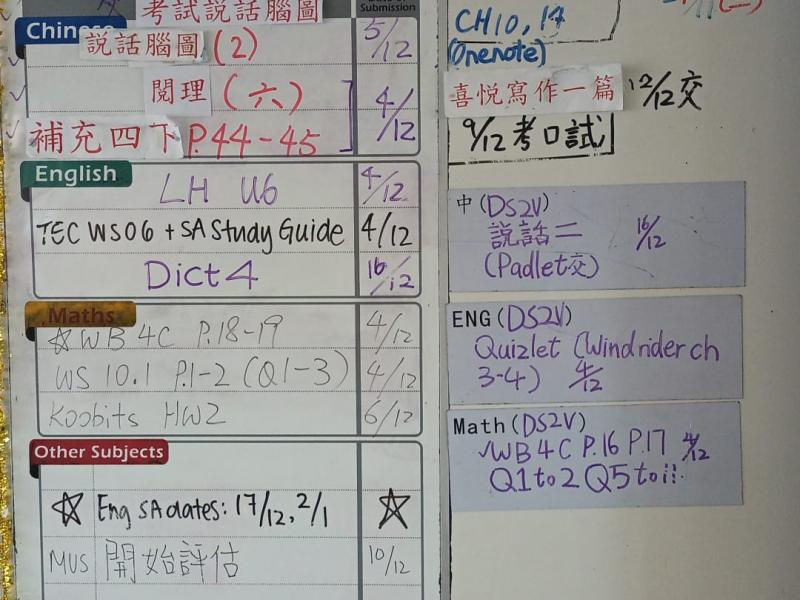 考試說話腦圖
Submission
Chinese
說話腦圖(2) 5/12
閱理(六) 4/12
補充四下 P.44-45
English
LH U6 4/12
TEC WS06 + SA Study Guide 4/12
Dict 4 16/12
Maths
☆WB 4C P.18-19 4/12
WS 10.1 P.1-2 (Q1-3) 4/12
Koobits HW2 6/12
Other Subjects
☆ Eng SA dates: 17/12, 2/1 ☆
MUS 開始評估 10/12
CH10, 14
(Onenote)
喜悅寫作一篇 12/12交
9/12考口試
中(DS2V)
說話二 16/12
(Padlet交)
ENG (DS2V)
Quizlet (Windrider ch
3-4) 4/12
Math (DS2V)
✓WB 4C P.16 P.17 4/12
Q1 to 2 Q5 to 11